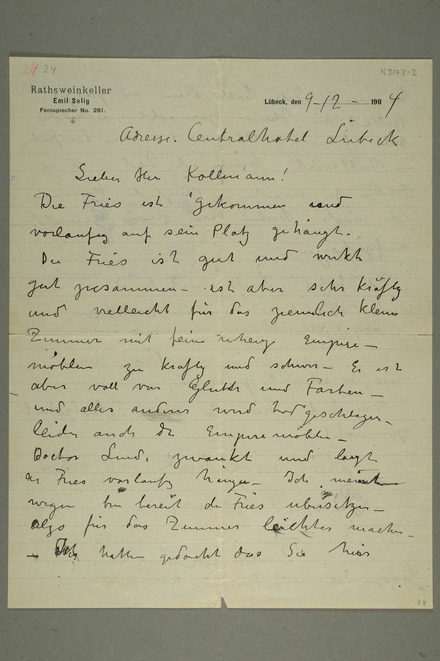 24
N 3173-2
Rathsweinkeller
Emil Selig
Fernsprecher No. 261.
Lübeck, den 9-12- 1904
Adresse. Centralhotel Lübeck
Lieber Herr Kollmann!
Die Fries ist gekommen und
vorlaufig auf sein Platz gehängt.
Die Fries ist gut und wirkt
gut zusammen - ist aber sehr kräftig
und vielleicht für das ziemlich klein
Zimmer mit sein Empire -
möblen zu kraftig und schwer - Es ist
aber voll von Glut und Farben -
und alles anderes wird todgeschlagen -
leider auch die Empire möbler -
Doctor Linde zwankt und laszt
die Fries vorlaufig hängen - Ich
wegen bin bereit die Fries ubersetzen -
also für das Zimmer leichtes machen -
- Ich hatten gedacht das Sie hier